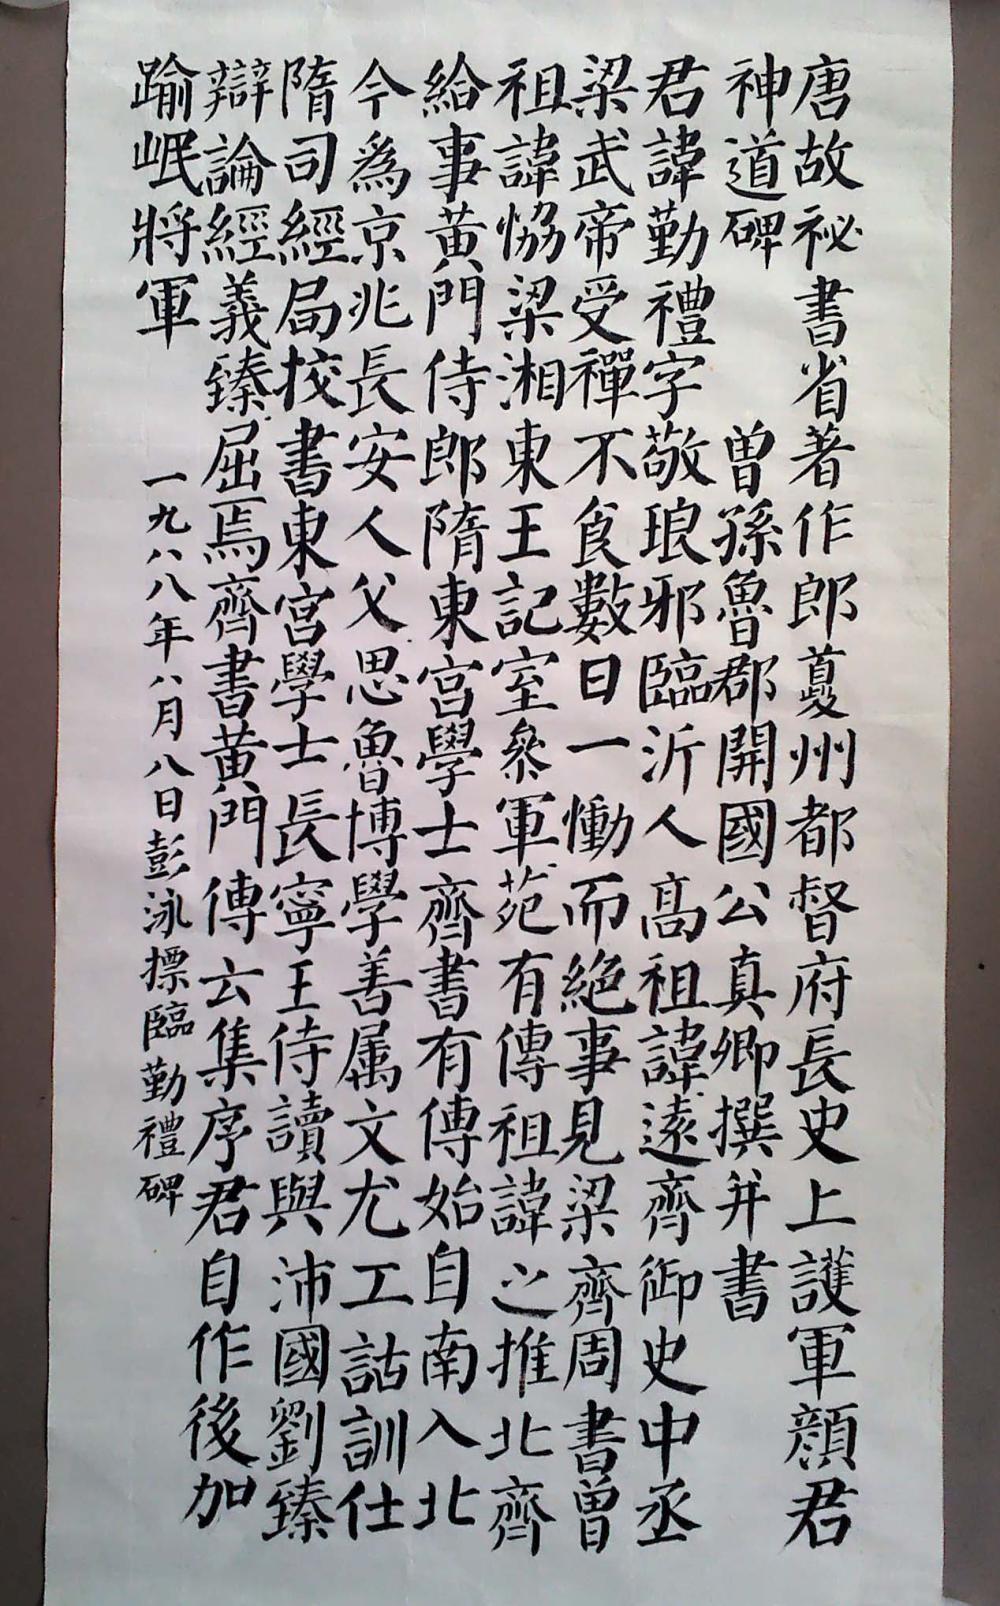 唐故祕書省著作郎夔州都督府長史上護軍顔君
神道碑
曾孫魯郡開國公真卿撰并書
君諱勤禮字敬琅邪臨沂人高祖諱遠齊御史中丞
梁武帝受禪不食數日一慟而絶事見梁齊周書曾
祖諱恊梁湘東王記室參軍苑有傳祖諱之推北齊
給事黄門侍郎隋東宫學士齊書有傳始自南入北
今爲京兆長安人父思魯博學善属文尤工詁訓仕
隋司經局挍書東宫學士長寧王侍讀與沛國劉臻
辯論經義臻屈焉齊書黄門傳云集序君自作後加
踰岷將軍
一九八八年八月八日彭泳摽臨勤禮碑